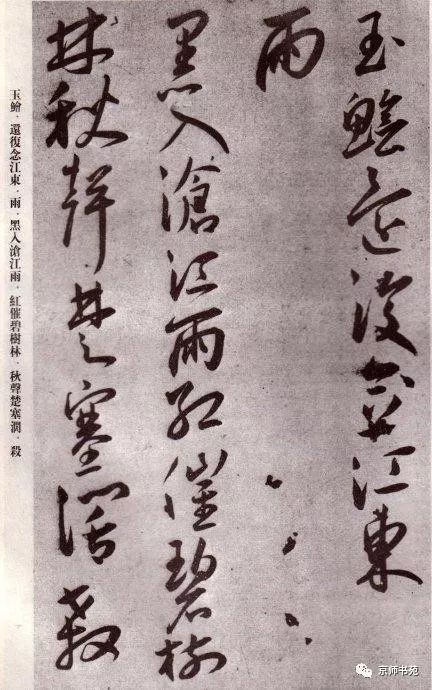 玉鱠還復念江東
雨
黑入滄江雨紅催碧樹
林秋聲楚塞濶殺
玉鱠．還復念江東．雨．黑入滄江雨．紅催碧樹林．秋聲楚塞濶．殺
京师书苑